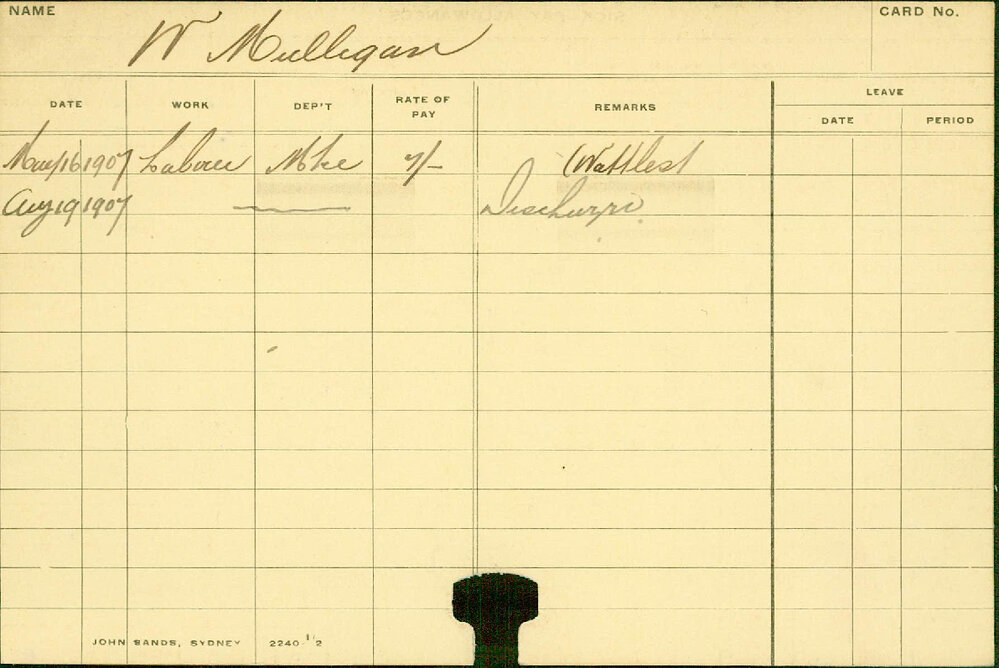 NAME W Mulligan CARD No.
DATE WORK DEP'T RATE OF PAY REMARKS LEAVE
DATE PERIOD
May 16 1907 Labour Mtce 7/- (Wattles)
Aug 19 1907 Discharge
JOHN SANDS, SYDNEY 2240-1/2